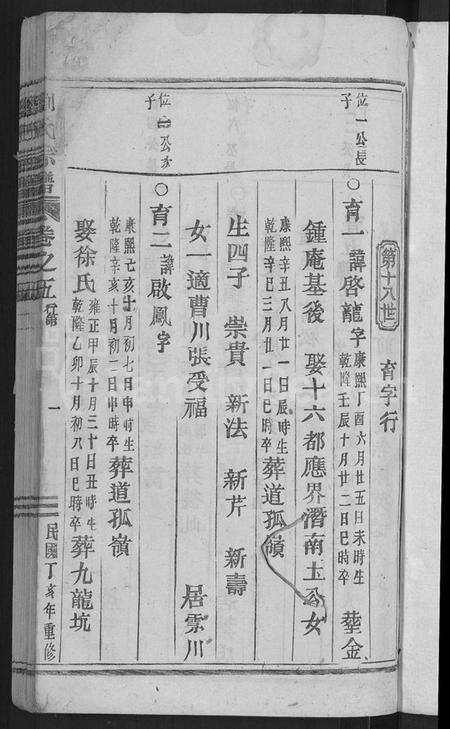 第十八世 育字行
位一公長子
○育一諱啓龍字 康熙丁酉六月廿五日未時生 乾隆壬辰十月廿二日巳時卒 葬金
鍾庵基後 娶十六都應界潛南土公女
康熙辛丑八月廿一日辰時生 乾隆辛巳三月廿一日巳時卒 葬道孤嶺
生四子 崇貴 新法 新芹 新壽
女一適曹川張受福 居雲川
位一公次子
○育二諱啟鳳字
康熙己亥十月初七日申時生 乾隆辛亥十月初二日申時卒 葬道孤嶺
娶徐氏 雍正甲辰十月三十日丑時生 乾隆乙卯十月初八日巳時卒 葬九龍坑
宗譜 卷之五 一 民國丁亥年重修